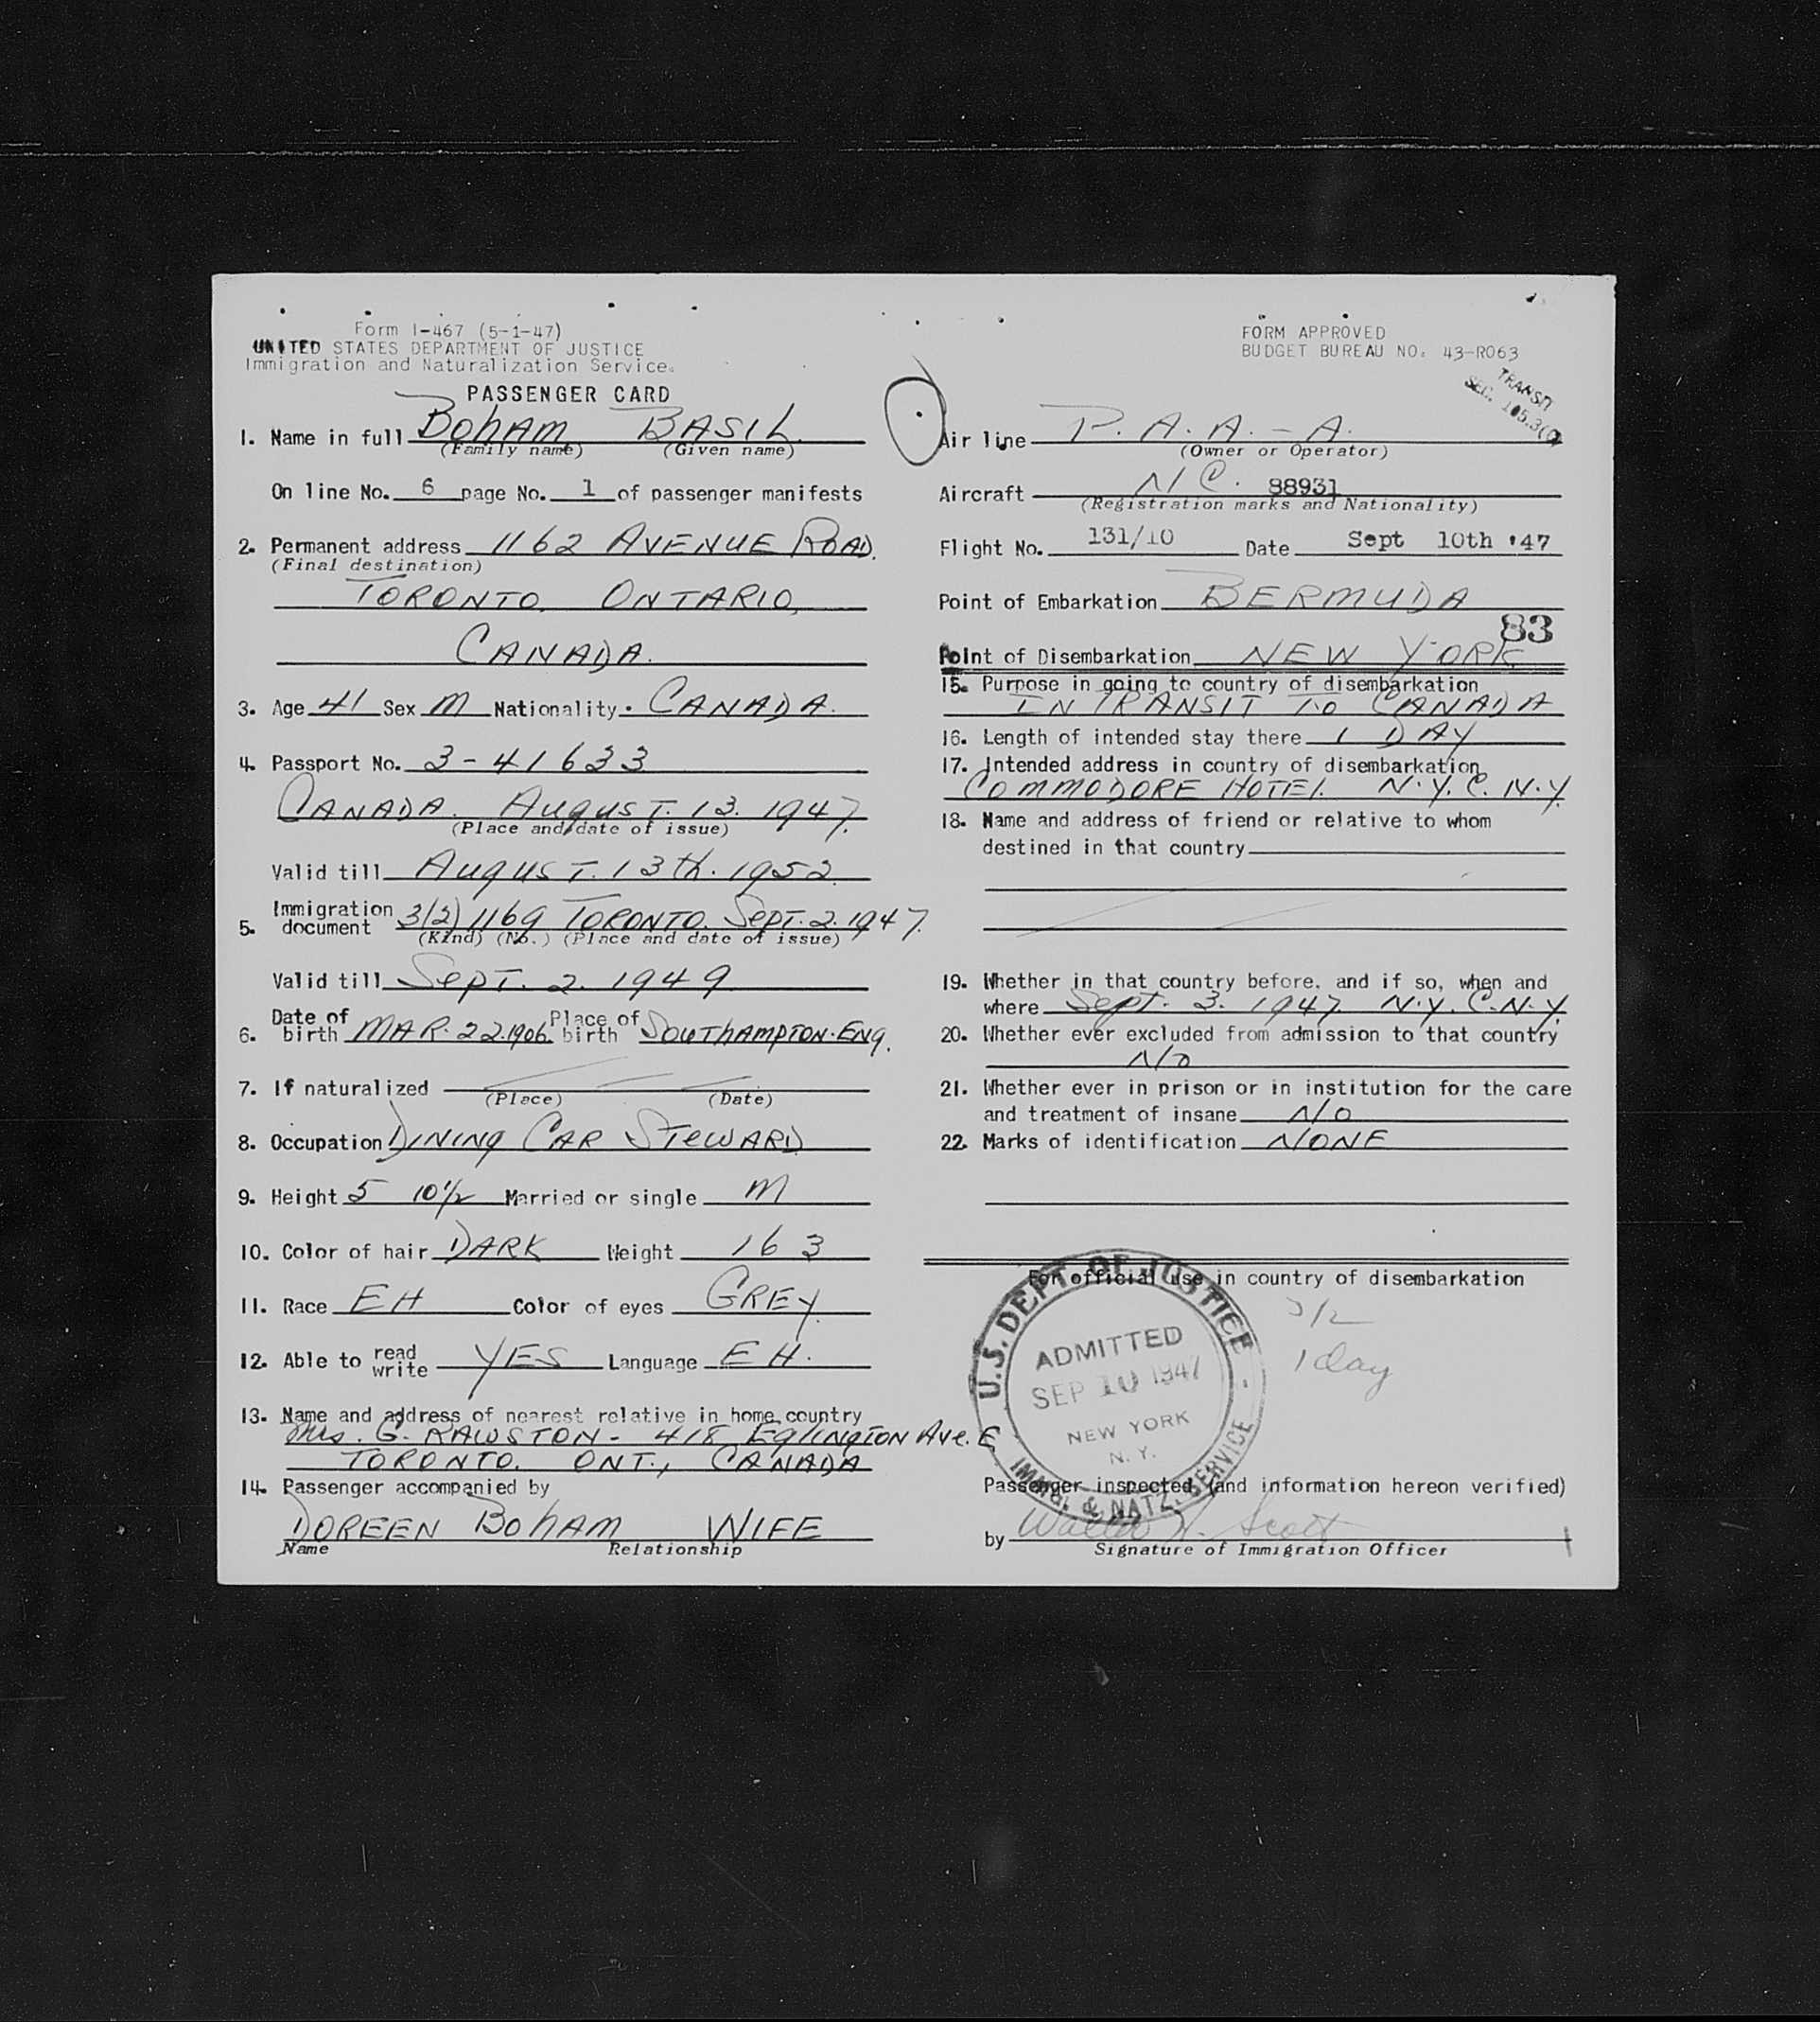 Form I-467 (5-1-47)
UNITED STATES DEPARTMENT OF JUSTICE
Immigration and Naturalization Service.
PASSENGER CARD
1. Name in full BOHAM BASIL
(Family name) (Given name)
On line No. 6 page No. 1 of passenger manifests
2. Permanent address 1162 AVENUE ROAD.
(Final destination)
TORONTO. ONTARIO,
CANADA.
3. Age 41 Sex M Nationality. CANADA.
4. Passport No. 3-41633
CANADA. AUGUST. 13. 1947.
(Place and date of issue)
Valid till AUGUST. 13th. 1952.
5. Immigration document 3(2) 1169 TORONTO. SEPT. 2. 1947.
(Kind) (No.) (Place and date of issue)
Valid till SEPT. 2. 1949
6. Date of birth MAR. 22. 1906. Place of birth SOUTHAMPTON. ENG.
7. If naturalized
(Place) (Date)
8. Occupation DINING CAR STEWARD
9. Height 5 10 1/2 Married or single M
10. Color of hair DARK Weight 163
11. Race EH Color of eyes GREY.
12. Able to read write YES Language EH.
13. Name and address of nearest relative in home country
Mrs. G. RAWSTON - 418 EGLINGTON AVE. E.
TORONTO. ONT., CANADA
14. Passenger accompanied by
DOREEN BOHAM WIFE
Name Relationship
FORM APPROVED
BUDGET BUREAU NO. 43-R063
TRANSIT
SEC. 105.3(
Air line P. A. A. - A.
(Owner or Operator)
Aircraft NC. 88931
(Registration marks and Nationality)
Flight No. 131/10 Date Sept 10th '47
Point of Embarkation BERMUDA
83
Point of Disembarkation NEW YORK
15. Purpose in going to country of disembarkation
IN TRANSIT TO CANADA
16. Length of intended stay there 1 DAY
17. Intended address in country of disembarkation
COMMODORE HOTEL. N.Y.C. N.Y.
18. Name and address of friend or relative to whom
destined in that country
19. Whether in that country before, and if so, when and
where Sept. 3. 1947. N.Y.C. N.Y.
20. Whether ever excluded from admission to that country
NO
21. Whether ever in prison or in institution for the care
and treatment of insane NO
22. Marks of identification NONE
For official use in country of disembarkation
3/2
1 day
U.S. DEPT. OF JUSTICE
ADMITTED
SEP 10 1947
NEW YORK
N. Y.
IMMIG. & NATZ. SERVICE
Passenger inspected (and information hereon verified)
by Walter Scott
Signature of Immigration Officer